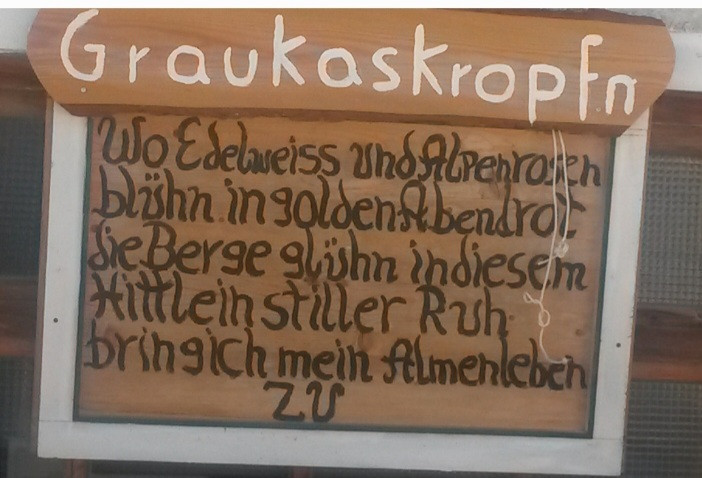 Graukaskropfn
Wo Edelweiss und Alpenrosen
blühn in golden Abendrot
die Berge glühn in diesem
Hittlein stiller Ruh
bring ich mein Almenleben
zu